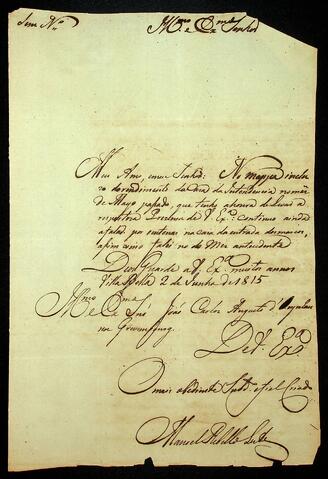 Sem Nº
Illmo e Exmo Senhor
Meu Amo, e meu Senhor: No mappa inclu
zo do rendimento da Caza da Intendencia no mez
de Mayo passado, que tenho a honra de levar a
respeitavel Prezença de V. Exª continua ainda
a falta por entrar na caixa da entrada do marco,
afim como falei no do Mez antecedente
Deos Guarde a V. Exª muitos annos
Villa Bella 2 de Junho de 1815
Illmo e Exmo Snr João Carlos Augusto d'Oeynhau
sen Grevenburg.
De V. Exª
O mais obediente Subd. e fiel Criado
Manoel Rebello Leite